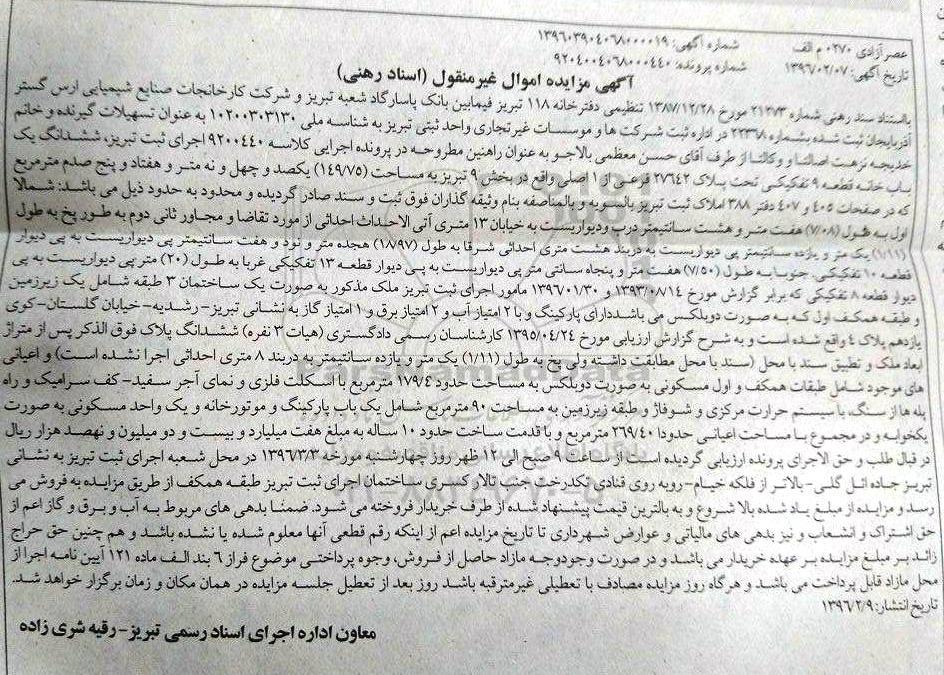 عصر آزادی ۰۲۷۰ م الف
شماره آگهی: ۱۳۹۶۰۳۹۰۴۰۶۸۰۰۰۰۱۹
تاریخ آگهی: ۱۳۹۶/۰۲/۰۷
شماره پرونده: ۹۲۰۴۰۰۴۰۶۸۰۰۰۴۴۰
آگهی مزایده اموال غیرمنقول (اسناد رهنی)
بااستناد سند رهنی شماره ۲۱۳۷۳ مورخ ۱۳۸۷/۱۲/۲۸ تنظیمی دفترخانه ۱۱۸ تبریز فیمابین بانک پاسارگاد شعبه تبریز و شرکت کارخانجات صنایع شیمیایی ارس گستر
آذربایجان ثبت شده بشماره ۲۲۳۶۸ در اداره ثبت شرکت ها و موسسات غیرتجاری واحد ثبتی تبریز به شناسه ملی ۱۰۲۰۰۳۰۳۱۳۰ به عنوان تسهیلات گیرنده و خانم
خدیجه نزهت اصالتا و وکالتا از طرف آقای حسن معظمی بالاجو به عنوان راهنین مطروحه در پرونده اجرایی کلاسه ۹۲۰۰۴۴۰ اجرای ثبت تبریز، ششدانگ یک
باب خانه قطعه ۹ تفکیکی تحت پلاک ۲۷۶۴۲ فرعی از ۱ اصلی واقع در بخش ۹ تبریز به مساحت (۱۴۹/۷۵) یکصد و چهل و نه متر و هفتاد و پنج صدم مترمربع
که در صفحات ۴۰۵ و ۴۰۷ دفتر ۳۸۸ املاک ثبت تبریز بالسویه و بالمناصفه بنام وثیقه گذاران فوق ثبت و سند صادر گردیده و محدود به حدود ذیل می باشد: شمالا
اول به طول (۷/۰۸) هفت متر و هشت سانتیمتر درب و دیواریست به خیابان ۱۳ متری آتی الاحداث احداثی از مورد تقاضا و مجاور ثانی دوم به طور پخ به طول
(۱/۱۱) یک متر و یازده سانتیمتر پی دیواریست به دربند هشت متری احداثی شرقا به طول (۱۸/۹۷) هجده متر و نود و هفت سانتیمتر پی دیواریست به پی دیوار
قطعه ۱۰ تفکیکی، جنوبا به طول (۷/۵۰) هفت متر و پنجاه سانتی متر پی دیواریست به پی دیوار قطعه ۱۳ تفکیکی غربا به طول (۲۰) متر پی دیواریست به پی
دیوار قطعه ۸ تفکیکی که برابر گزارش مورخ ۱۳۹۳/۰۸/۱۴ و ۱۳۹۶/۰۱/۳۰ مامور اجرای ثبت تبریز ملک مذکور به صورت یک ساختمان ۳ طبقه شامل یک زیرزمین
و طبقه همکف اول که به صورت دوبلکس می باشد دارای پارکینگ و با ۲ امتیاز آب و ۲ امتیاز برق و ۱ امتیاز گاز به نشانی تبریز- رشدیه- خیابان گلستان- کوی
یازدهم پلاک ۴ واقع شده است و به شرح گزارش ارزیابی مورخ ۱۳۹۵/۰۴/۲۴ کارشناسان رسمی دادگستری (هیات ۳ نفره) ششدانگ پلاک فوق الذکر پس از متراژ
ابعاد ملک و تطبیق سند با محل (سند با محل مطابقت داشته ولی پخ به طول (۱/۱۱) یک متر و یازده سانتیمتر به دربند ۸ متری احداثی اجرا نشده است) و اعیانی
های موجود شامل طبقات همکف و اول مسکونی به صورت دوبلکس به مساحت حدود ۱۷۹/۴ مترمربع با اسکلت فلزی و نمای آجر سفید- کف سرامیک و راه
پله ها از سنگ، با سیستم حرارت مرکزی و شوفاژ و طبقه زیرزمین به مساحت ۹۰ مترمربع شامل یک باب پارکینگ و موتورخانه و یک واحد مسکونی به صورت
یکخوابه و در مجموع با مساحت اعیانی حدودا ۲۶۹/۴۰ مترمربع و با قدمت ساخت حدود ۱۰ ساله به مبلغ هفت میلیارد و بیست و دو میلیون و نهصد هزار ریال
در قبال طلب و حق الاجرای پرونده ارزیابی گردیده است از ساعت ۹ صبح الی ۱۲ ظهر روز چهارشنبه مورخه ۱۳۹۶/۳/۳ در محل شعبه اجرای ثبت تبریز به نشانی
تبریز جاده ائل گلی- بالاتر از فلکه خیام- روبه روی قنادی تکدرخت جنب تالار ساختمان اجرای ثبت تبریز طبقه همکف از طریق مزایده به فروش می
رسد و مزایده از مبلغ یاد شده بالا شروع و به بالاترین قیمت پیشنهاد شده از طرف خریدار فروخته می شود. ضمنا بدهی های مربوط به آب و برق و گاز اعم از
حق اشتراک و انشعاب و نیز بدهی های مالیاتی و عوارض شهرداری تا تاریخ مزایده اعم از اینکه رقم قطعی آنها معلوم شده یا نشده باشد و هم چنین حق حراج
زائد بر مبلغ مزایده بر عهده خریدار می باشد و در صورت وجود وجه مازاد حاصل از فروش، وجوه پرداختی موضوع فراز ۶ بند الف ماده ۱۲۱ آیین نامه اجرا از
محل مازاد قابل پرداخت می باشد و هرگاه روز مزایده مصادف با تعطیلی غیرمترقبه باشد روز بعد از تعطیل جلسه مزایده در همان مکان و زمان برگزار خواهد شد.
تاریخ انتشار: ۱۳۹۶/۲/۹
معاون اداره اجرای اسناد رسمی تبریز- رقیه شری زاده